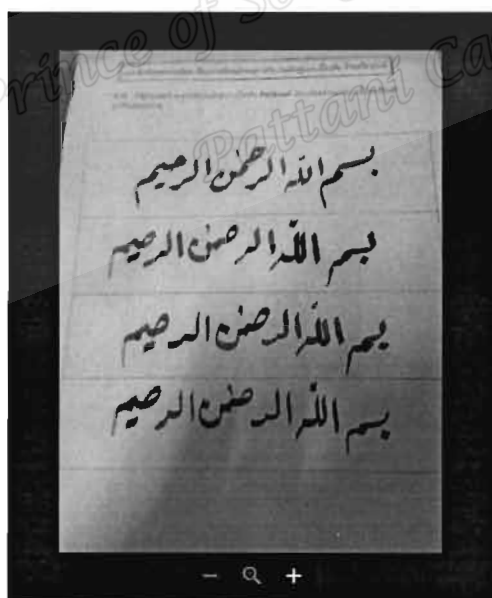 Prince of
Pattani Ca
بسم الله الرحمن الرحيم
بسم الله الرحمن الرحيم
بسم الله الرحمن الرحيم
بسم الله الرحمن الرحيم